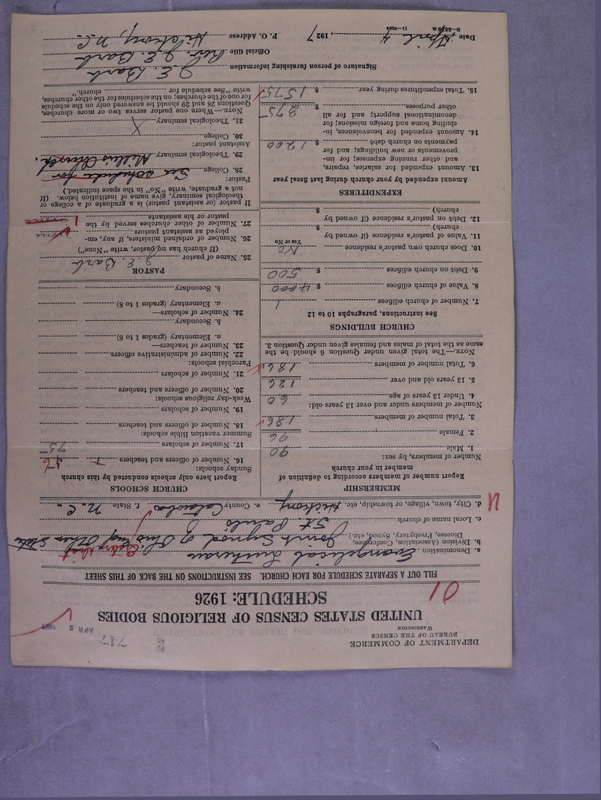 DEPARTMENT OF COMMERCE
BUREAU OF THE CENSUS
WASHINGTON
747
APR 8 1927
UNITED STATES CENSUS OF RELIGIOUS BODIES
SCHEDULE: 1926
FILL OUT A SEPARATE SCHEDULE FOR EACH CHURCH. SEE INSTRUCTIONS ON THE BACK OF THIS SHEET
a. Denomination Evangelical Lutheran
b. Division (Association, Conference, Diocese, Presbytery, Synod, etc.) Joint Synod of Ohio and Other States
c. Local name of church St Pauls
d. City, town, village, or township, etc. Hickory e. County Catawba f. State N.C.
MEMBERSHIP
Report number of members according to definition of
member in your church
Number of members, by sex:
1. Male 90
2. Female 96
3. Total number of members 186
Number of members under and over 13 years old:
4. Under 13 years of age 60
5. 13 years old and over 126
6. Total number of members 186
NOTE.—The total given under Question 6 should be the
same as the total of males and females given under Question 3.
CHURCH BUILDINGS
See instructions, paragraphs 10 to 12
7. Number of church edifices 1
8. Value of church edifices $ 4000
9. Debt on church edifices $ 500
10. Does church own pastor's residence No
Yes or No
11. Value of pastor's residence (if owned by
church) $
12. Debt on pastor's residence (if owned by
church) $
EXPENDITURES
Amount expended by your church during last fiscal year
13. Amount expended for salaries, repairs,
and other running expenses; for im-
provements or new buildings; and for
payments on church debt $ 1200
14. Amount expended for benevolences, in-
cluding home and foreign missions; for
denominational support; and for all
other purposes $ 375
15. Total expenditures during year $ 1575
CHURCH SCHOOLS
Report here only schools conducted by this church
Sunday schools:
16. Number of officers and teachers
17. Number of scholars 75
Summer vacation Bible schools:
18. Number of officers and teachers
19. Number of scholars
Week-day religious schools:
20. Number of officers and teachers
21. Number of scholars
Parochial schools:
22. Number of administrative officers
23. Number of teachers—
a. Elementary (grades 1 to 8)
b. Secondary
24. Number of scholars—
a. Elementary (grades 1 to 8)
b. Secondary
PASTOR
25. Name of pastor J. E. Barb
(If church has no pastor, write "None")
26. Number of ordained ministers, if any, em-
ployed as assistant pastors
27. Number of other churches served by the
pastor or his assistants 1
If pastor (or assistant pastor) is a graduate of a college or
theological seminary, give name of institution below. (If
not a graduate, write "No" in the space indicated.)
Pastor:
28. College See schedule for
29. Theological seminary Church.
Assistant pastor:
30. College
31. Theological seminary
NOTE.—Where one pastor serves two or more churches,
Questions 28 and 29 should be answered only on the schedule
for one of the churches; on the schedules for the other churches,
write "See schedule for church."
Signature of person furnishing information J. E. Barb
Official title Rev. J. E. Barb
P. O. Address Hickory, N.C.
Date April 4 1927